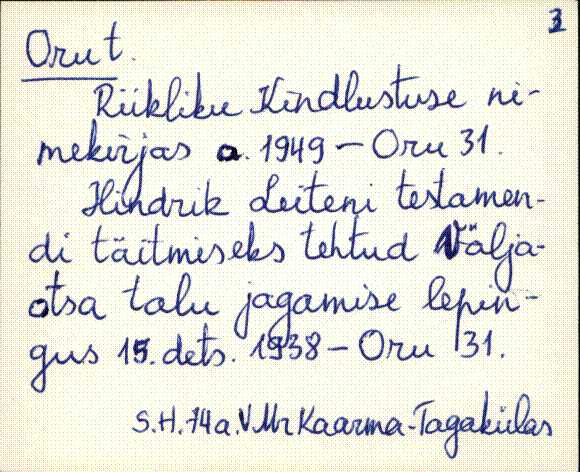 3
Oru t.
Riikliku Kindlustuse ni-
mekirjas a. 1949 – Oru 31.
Hindrik Leiteni testamen-
di täitmiseks tehtud Välja-
otsa talu jagamise lepin-
gus 15. dets. 1938 – Oru 31.
S.H. 74 a. V.Mr Kaarma-Tagakülas